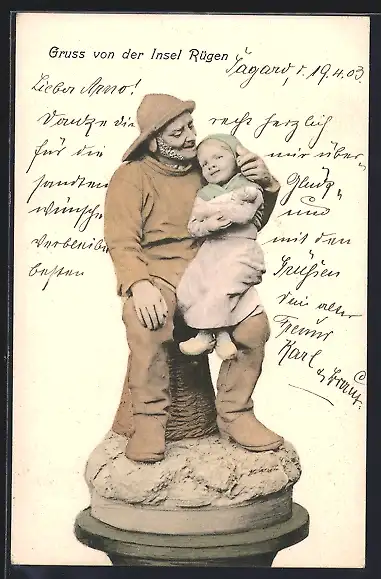 Gruss von der Insel Rügen
Sagard, d. 19.4.03.
Lieber Arno!
Danke dir recht herzlich
für die mir über-
sandten Glück-
wünsche und
verbleibe mit den
besten Grüßen
dein alter
Freund
Karl